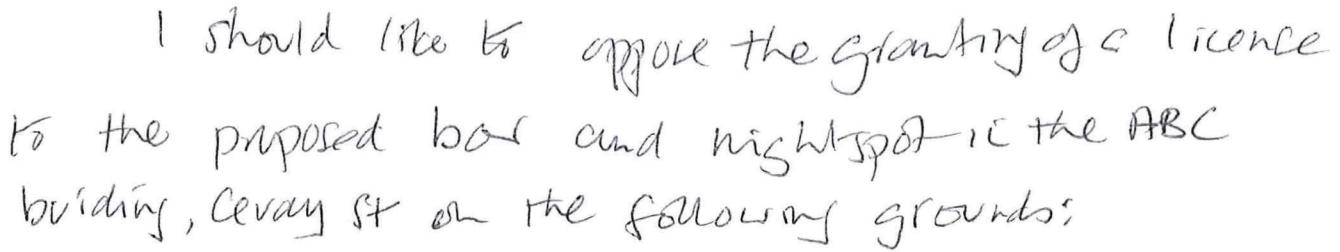 I should like to oppose the granting of a licence
to the proposed bar and nightspot in the ABC
buiding, Cevay St on the following grounds: